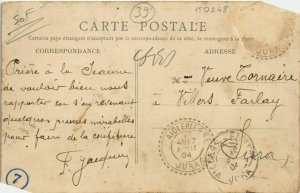 50F
39
150248
CARTE POSTALE
Certains pays étrangers n'acceptent pas la correspondance de ce côté, se renseigner à la Poste
CORRESPONDANCE
ADRESSE
Prière à la Jeanne
de vouloir bien nous
rapporter en s'en revenant
quelques prunes mirabelles
pour faire de la confiture
F. Jacquin
M
Veuve Tornaire
à Villers-Farlay
Jura
AOUT
04
JURA
7